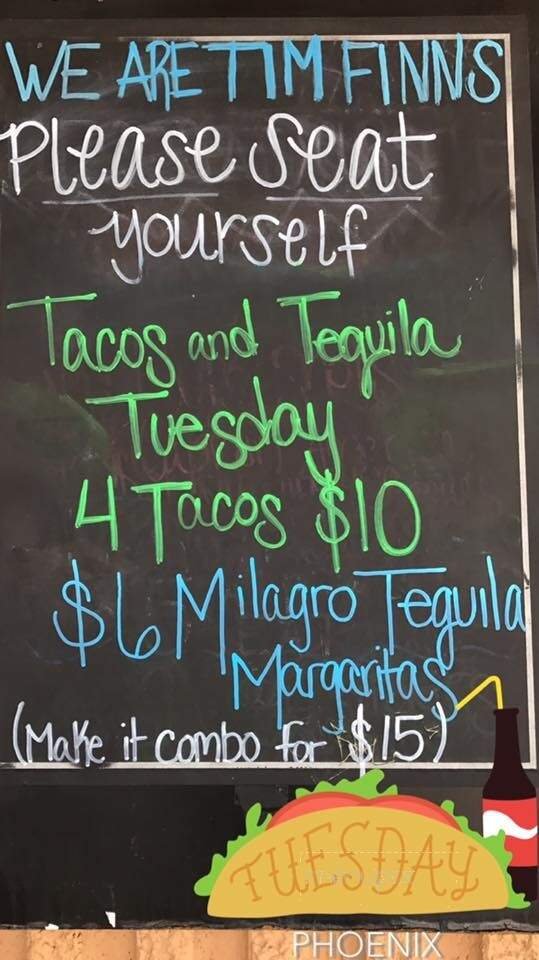 WE ARE TIM FINNS
Please Seat
yourself
Tacos and Tequila
Tuesday
4 Tacos $10
$6 Milagro Tequila
Margaritas
(Make it combo for $15)
TUESDAY
PHOENIX